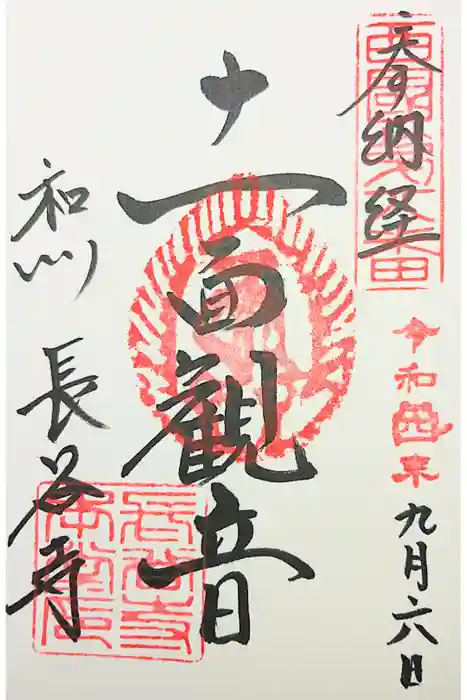 西國第八番
奉納経
令和四年
九月六日
十一面観音
和州 長谷寺